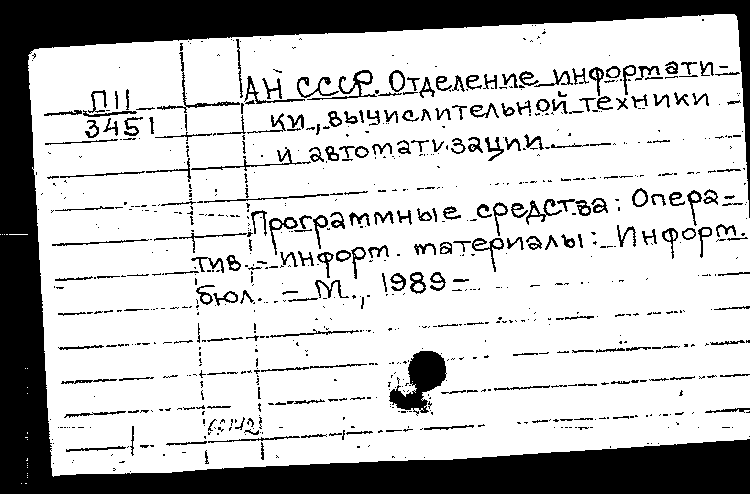 П11
3451
АН СССР. Отделение информати-
ки, вычислительной техники
и автоматизации.
Программные средства: Опера-
тив. - информ. материалы: Информ.
бюл. - М., 1989-